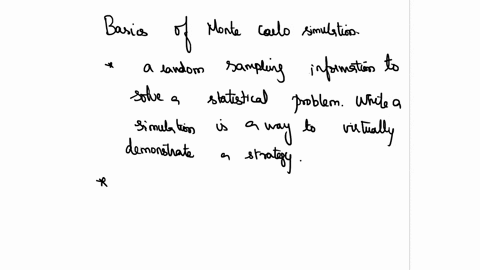 Basics of Monte Carlo simulation.
* a random sampling information to
solve a statistical problem. While a
simulation is a way to virtually
demonstrate a strategy.
*